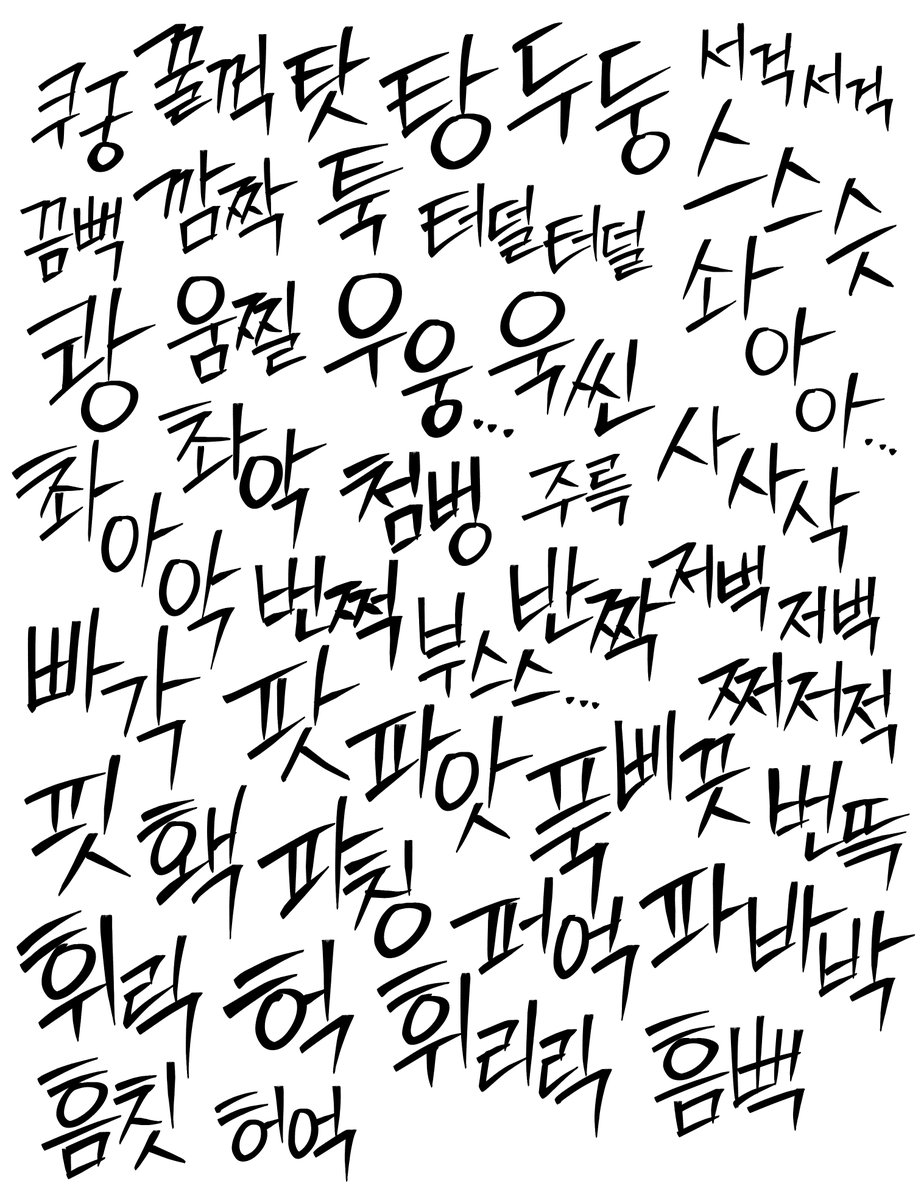 쿠궁 꿀꺽 탓 탕 두둥 서걱서걱
끔뻑 깜짝 툭 터덜터덜 스스슷
쾅 움찔 우웅... 욱씬 솨아아...
촤아악 촤악 첨벙 주륵 사사삭
번쩍 부스스... 반짝 저벅 저벅
빠각 팟 파앗 풉 삐끗 쩌저적
핏 홱 파칭 퍼억 파바박 번뜩
휘릭 헉 휘리릭 흠뻑
흠칫 허억